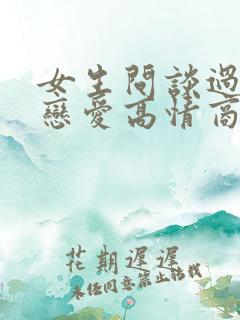 女生問談過
戀愛高情商
花期遲遲
未经同意禁止转载